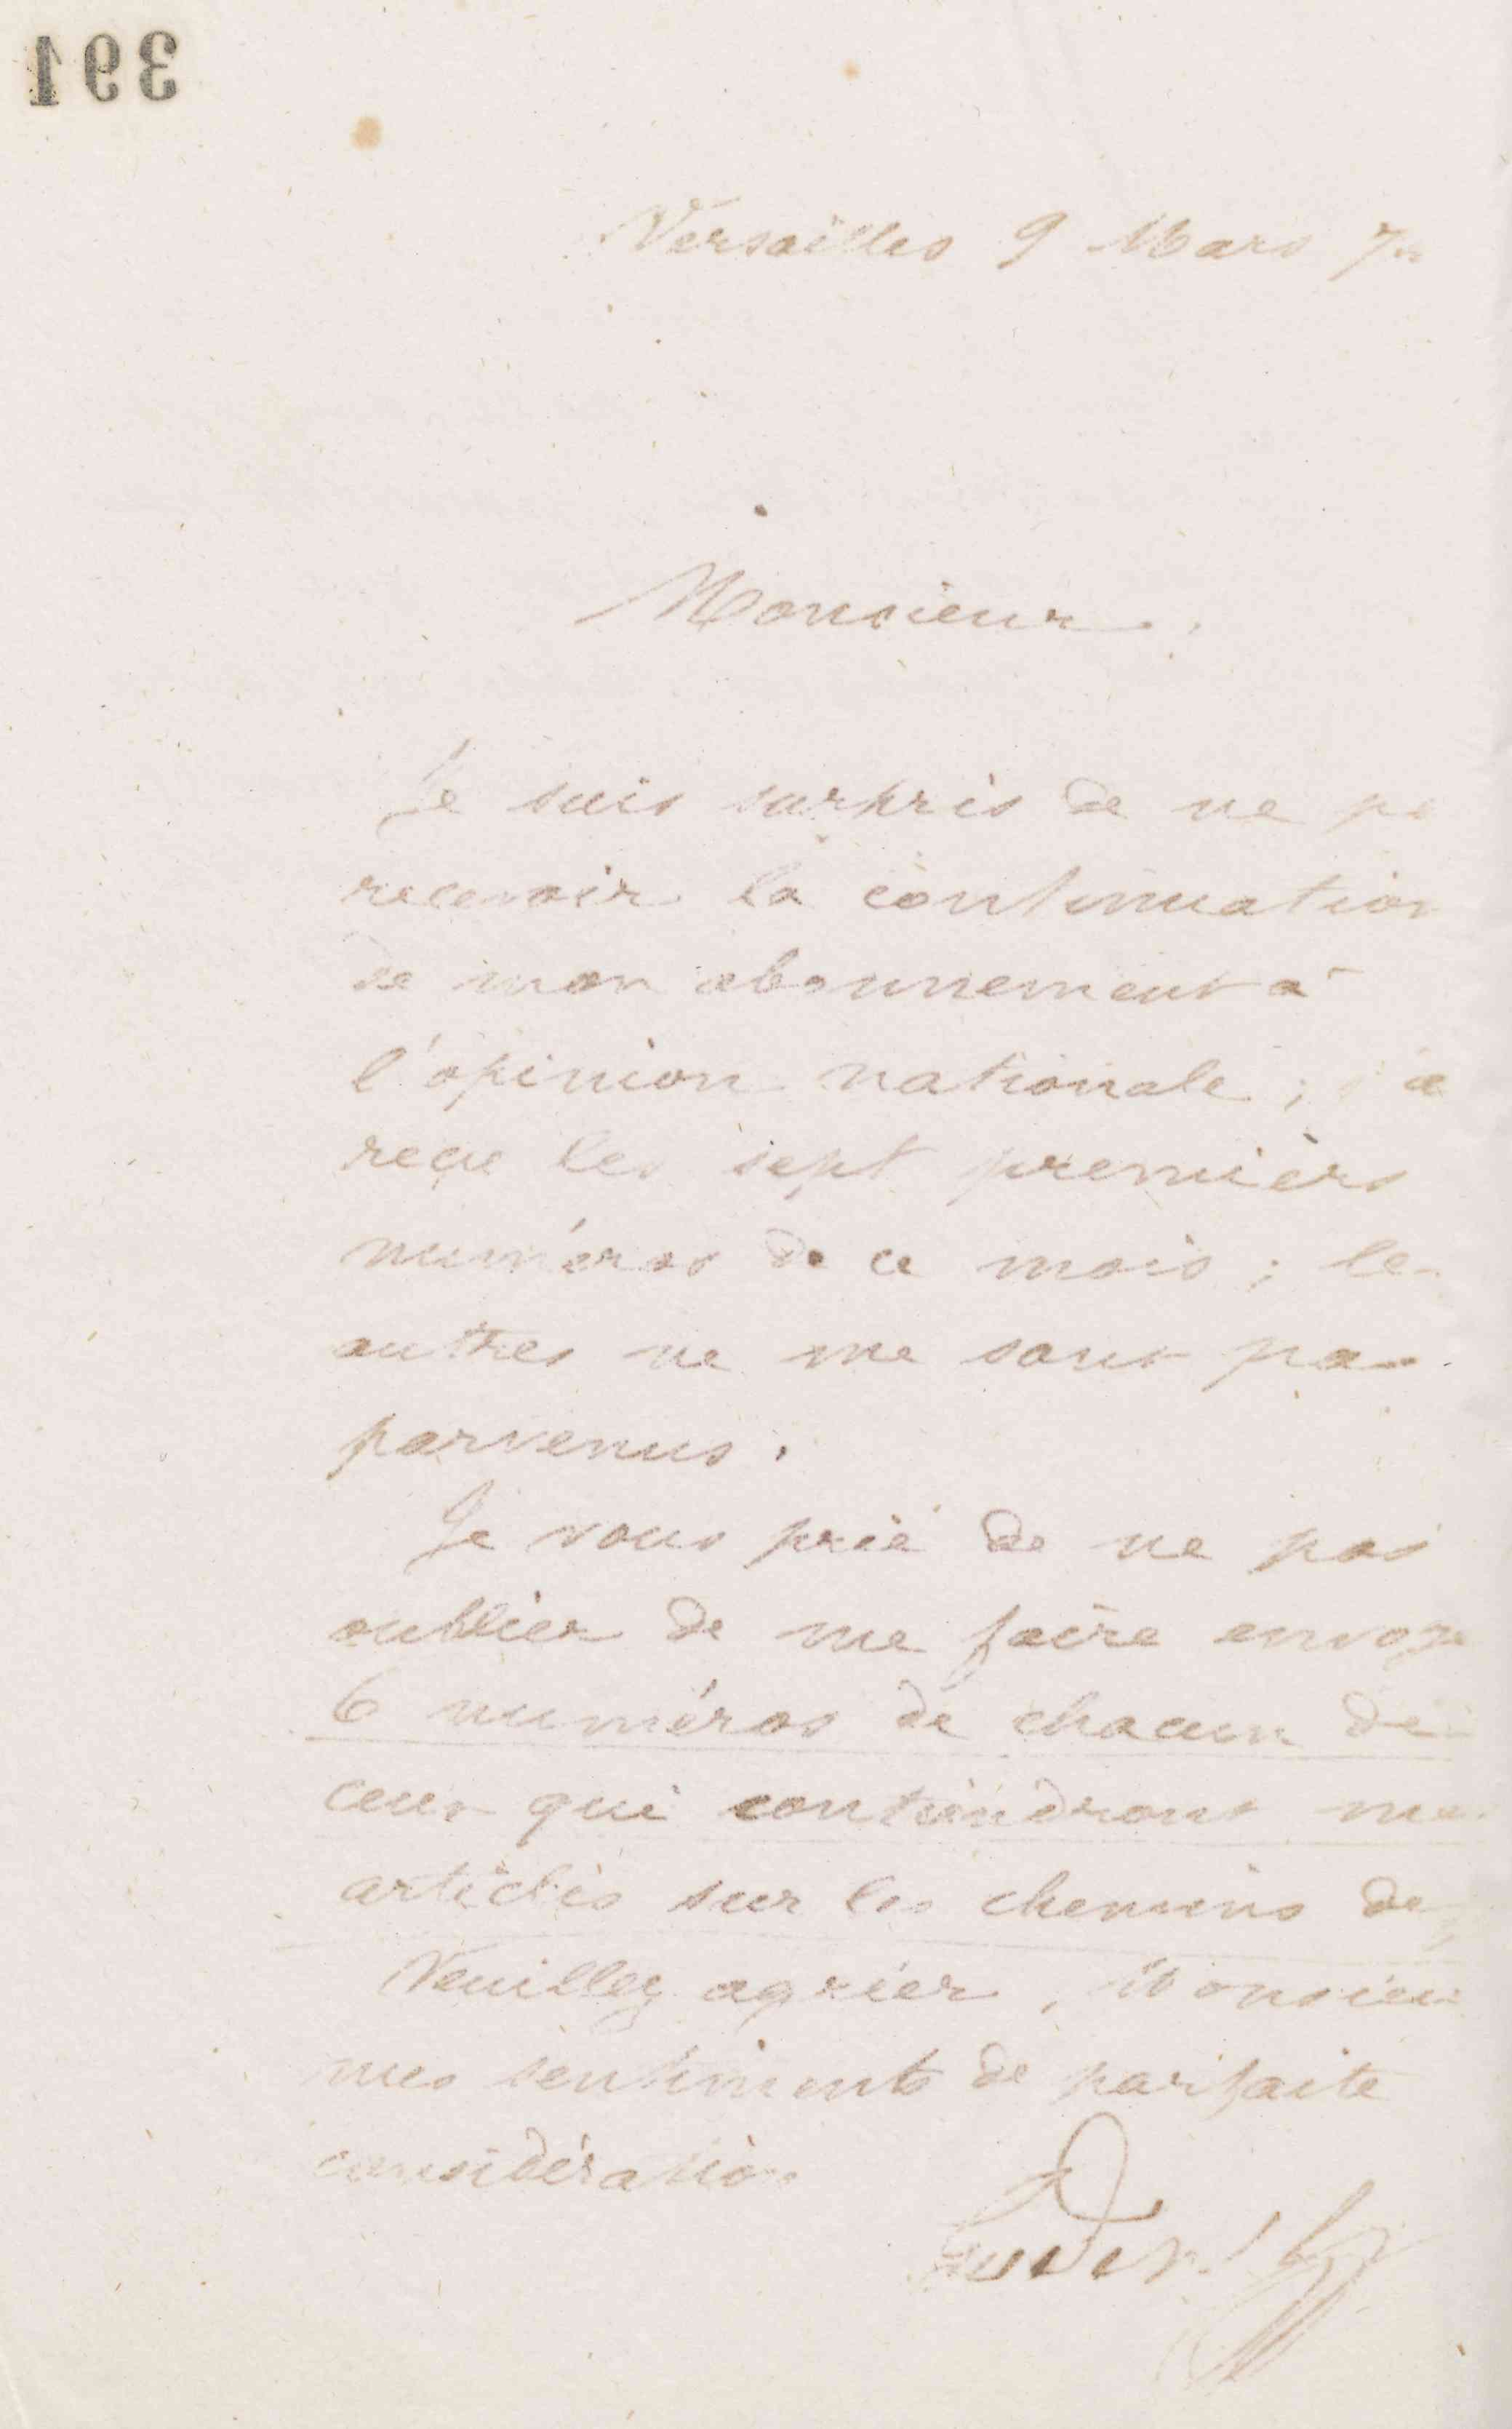 391
Versailles 9 Mars 7
Monsieur.
Je suis surpris de ne pa
recevoir la continuation
de mon abonnement à
l'opinion nationale ; j'a
reçu les sept premièrs
numéros de ce mois ; le
autres ne me sont pas
parvenus.
Je vous prie de ne pas
oublier de me faire envoye
6 numéros de chacun de
ceux qui contiendront mes
articles sur les chemins de
Veuillez agréer, Monsieur
mes sentiments de parfaite
considération
Godin